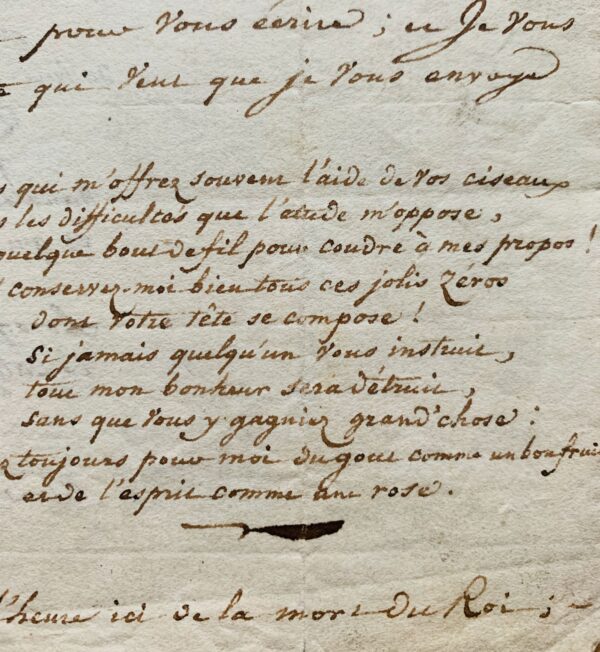 pour Vous écrire ; et Je Vous
qui veut que je Vous envoye
qui m'offrez souvent l'aide de vos ciseaux
les difficultés que l'étude m'oppose,
quelque bout de fil pour coudre à mes propos !
conservez-moi bien tous ces jolis zéros
dont votre tête se compose !
si jamais quelqu'un vous instruit,
tout mon bonheur sera détruit,
sans que vous y gagniez grand'chose :
toujours pour moi du gout comme un bon fruit
et de l'esprit comme une rose.
l'heure ici de la mort du Roi ; -